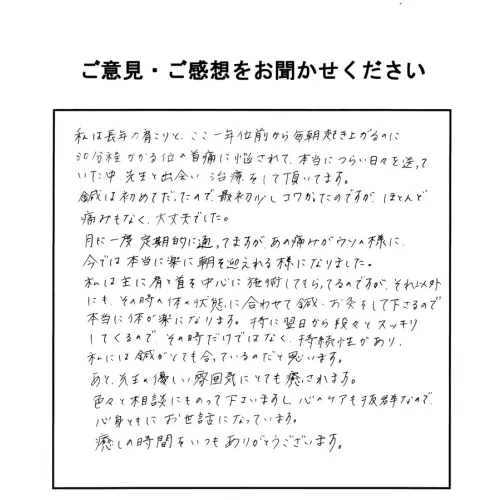 ご意見・ご感想をお聞かせください
私は長年の肩こりと、ここ一年位前から毎朝起き上がるのに
30分程かかる位の首痛に悩されて、本当につらい日々を送って
いた中、先生と出会い治療をして頂いてます。
鍼は初めてだったので、最初少しコワかったのですが、ほとんど
痛みもなく、大丈夫でした。
月に一度、定期的に通ってますが、あの痛みがウソの様に、
今では本当に楽に朝を迎えれる様になりました。
私は主に肩と首を中心に施術してもらってるのですが、それ以外
にも、その時の体の状態に合わせて鍼・お灸をして下さるので
本当に体が楽になります。特に翌日から段々とスッキリ
してくるので、その時だけではなく、持続性があり、
私には鍼がとても合っているのだと思います。
あと、先生の優しい雰囲気にとても癒されます。
色々と相談にものって下さいますし、心のケアも抜群なので、
心身ともにお世話になっています。
癒しの時間をいつもありがとうございます。